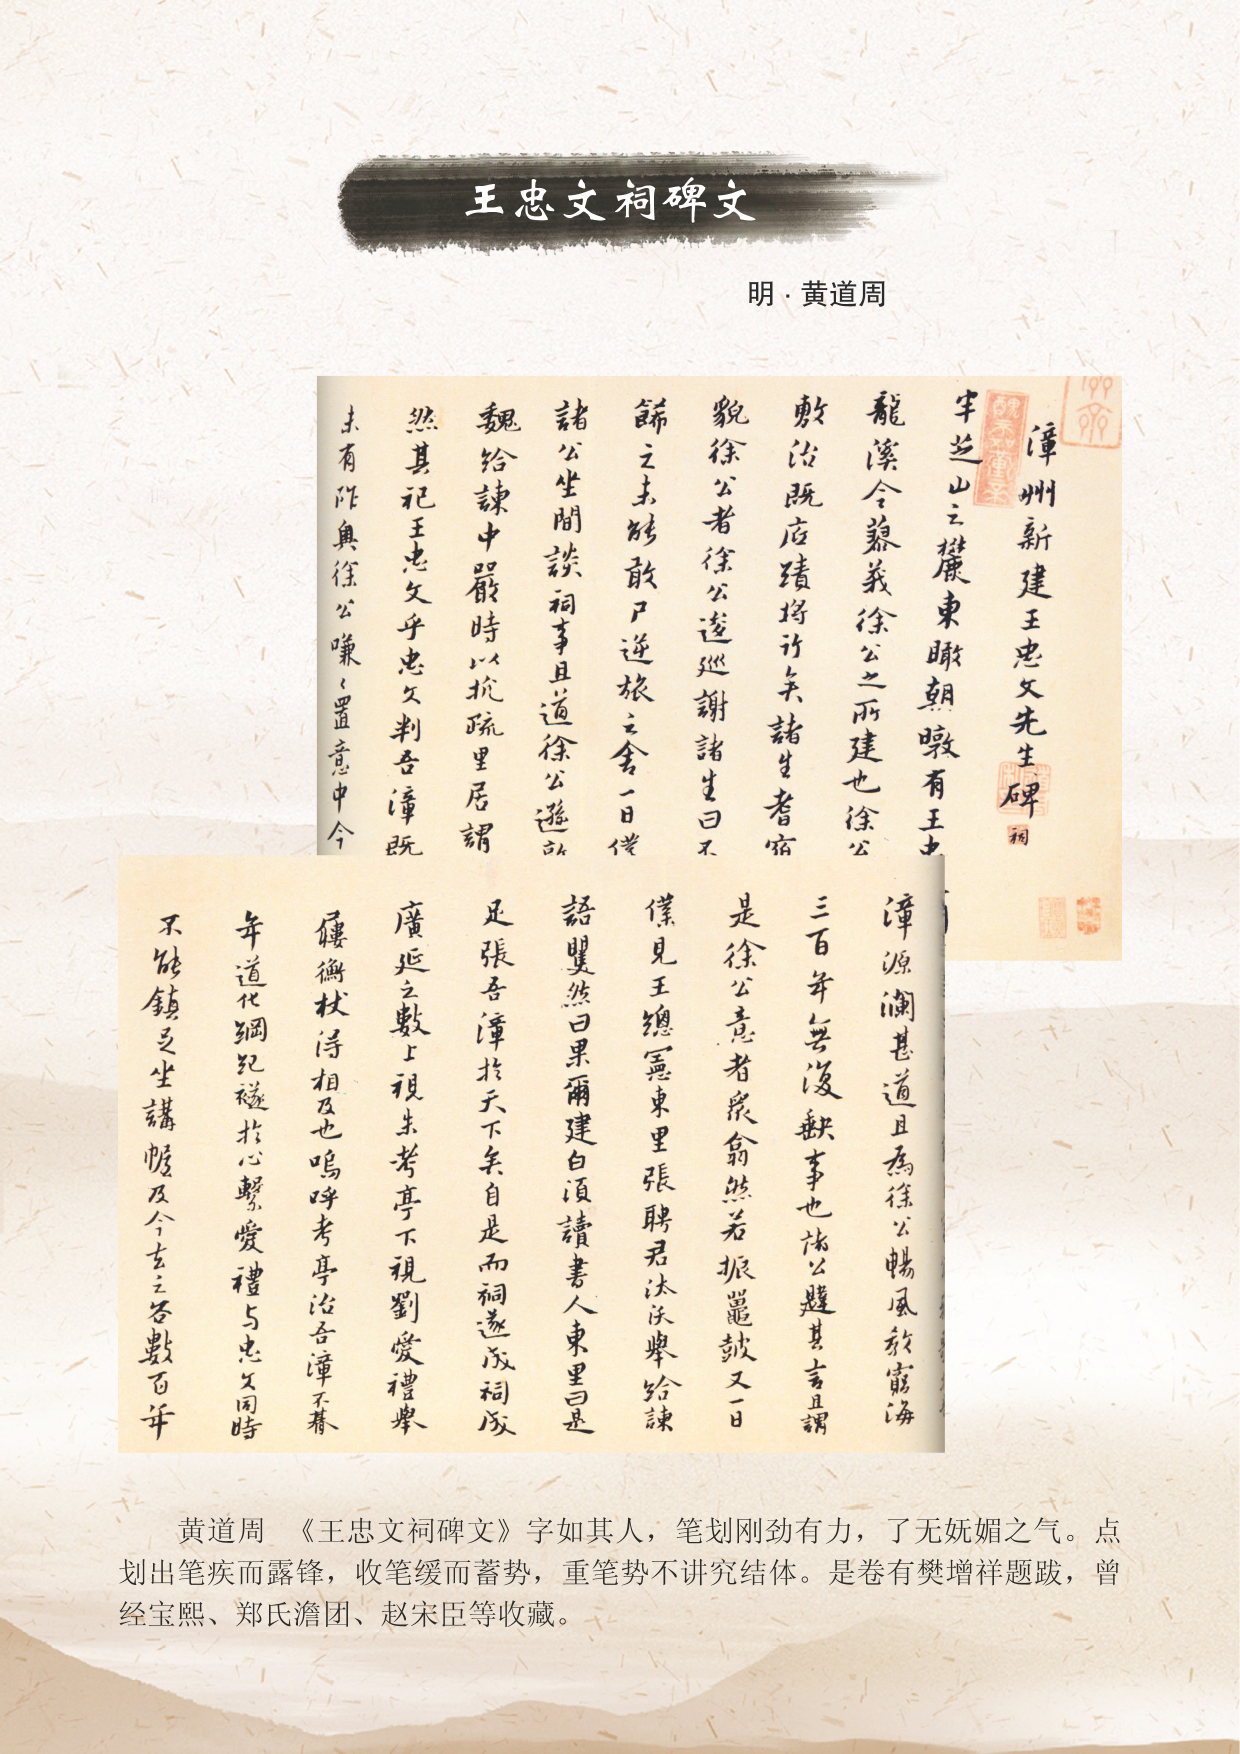 王忠文祠碑文
明·黄道周
漳州新建王忠文先生碑
祠
芝山之麓東瞰朝暾有王忠
龍溪令蔡義徐公之所建也徐公
敷治既店蹟将行矣諸生耆宿
貌徐公者徐公逡巡謝諸生曰不
餙之未能敢尸逆旅之舍一日僕
諸公坐間談祠事且道徐公遜
魏給諫中嚴時以抗疏里居謂
然其祀王忠文乎忠文判吾漳既
未有阼與徐公嗛〻置意中今
漳源瀾甚道且為徐公暢風教窮海
三百年無復缺事也諸公韙其言且謂
是徐公意者衆翕然若振鼍鼓又一日
僕見王總憲東里張聘君汰沃舉給諫
語瞿然曰果爾建白須讀書人東里曰是
足張吾漳於天下矣自是而祠遂成祠成
廣延之數上視朱考亭下視劉愛禮舉
僂衡杖得相及也嗚呼考亭治吾漳不朞
年道化綱紀襚於心繫愛禮与忠文同時
不能鎮足坐講帷及今去之各數百年
黄道周 《王忠文祠碑文》字如其人，笔划刚劲有力，了无妩媚之气。点
划出笔疾而露锋，收笔缓而蓄势，重笔势不讲究结体。是卷有樊增祥题跋，曾
经宝熙、郑氏澹团、赵宋臣等收藏。